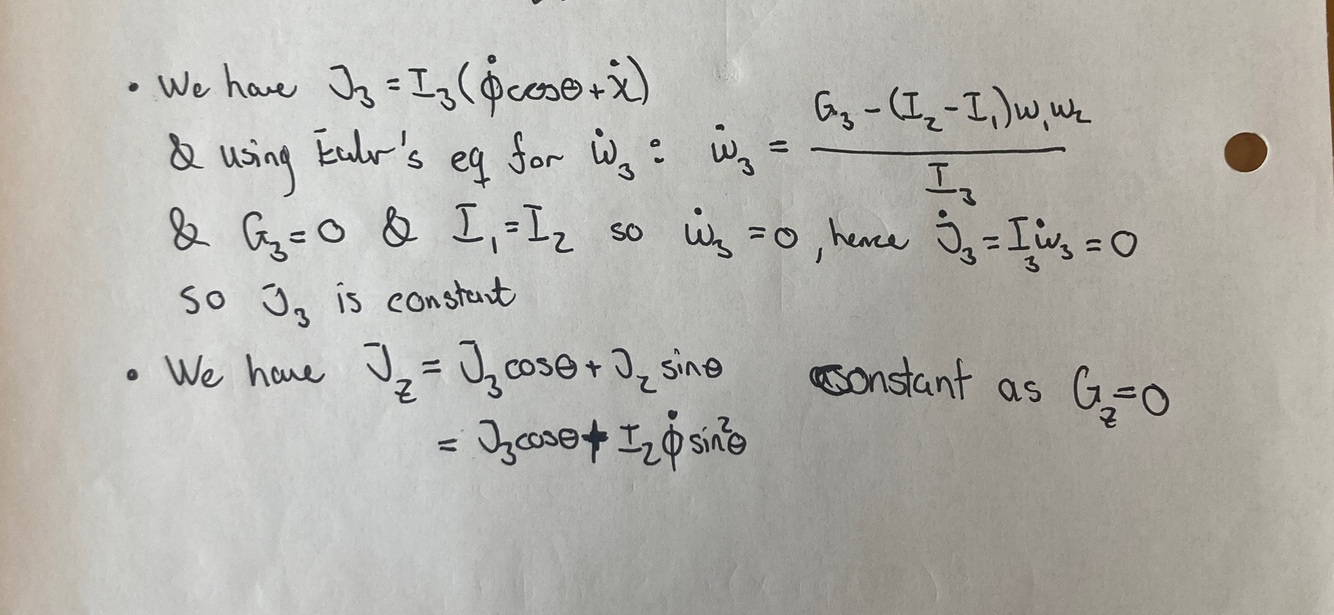 • We have J₃ = I₃(φ̇cosθ + χ̇)
& using Euler's eq for ẇ₃ : ẇ₃ = (G₃ - (I₂ - I₁)w₁w₂) / I₃
& G₃ = 0 & I₁ = I₂ so ẇ₃ = 0, hence J̇₃ = I₃ẇ₃ = 0
so J₃ is constant
• We have J_z = J₃cosθ + J₂ sinθ constant as G_z = 0
= J₃cosθ + I₂φ̇ sin²θ